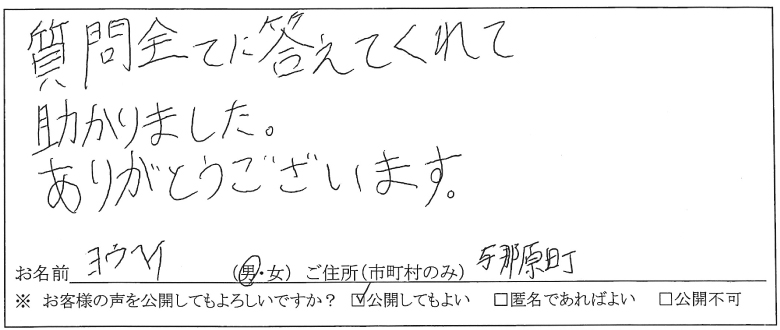 質問全てに答えてくれて
助かりました。
ありがとうございます。
お名前 ヨウヘイ (男・女) ご住所(市町村のみ) 与那原町
※ お客様の声を公開してもよろしいですか? ☑公開してもよい □匿名であればよい □公開不可